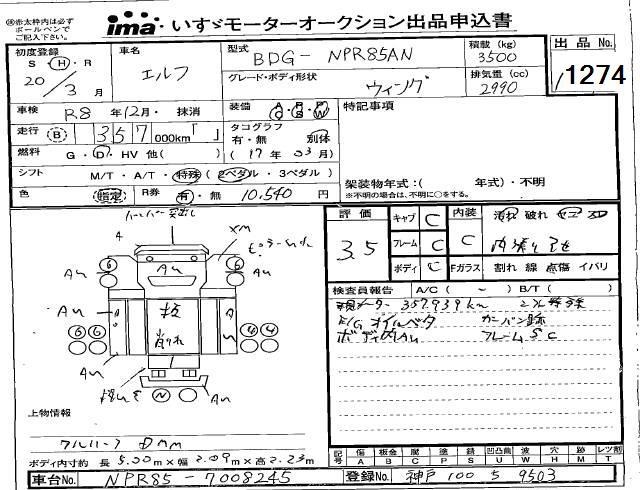 ㊟赤太枠内は必ず
ボールペンで
ご記入下さい。
ima・いすゞモーターオークション出品申込書
初度登録
S・H・R
20年3月
車名
エルフ
型式
BDG- NPR85AN
グレード・ボディ形状
ウィング
積載 (kg)
3500
排気量 (cc)
2990
出品 No.
1274
車検 R8 年 12月・ 抹消
走行 B 357 000km「 」
燃料 G・D・HV 他( )
シフト M/T・A/T・特殊 (2ペダル・3ペダル)
色 指定 R券 有・無 10,540 円
装備 A/C P/S P/W
タコグラフ
有・無 別体
(17年03月)
特記事項
架装物年式:( 年式)・不明
※不明の場合は、不明に○をする。
評価
3.5
キャブ C
フレーム C
ボディ C
内装
C
汚れ 破れ
Fガラス 割れ 線 点傷 イバリ
検査員報告 A/C ( ~ ) B/T ( )
現メーター 357,939km
E/G オイルベタ カーボン跡
ボディ内AU フレームSC
4
XM
AU
AU
AU
6
6
AU
板
削れ
AU
6 6
4 4
AU
N
AU
上物情報
ボディ内寸約 長 5.00 m×幅 2.09 m×高 2.23 m
記号
傷 A
板金 B
腐 C
塗 P
錆 S
凹凸曲 U
波 W
穴 H
跡 M
レツ割 T
車台No. NPR85-7008245
登録No. 神戸 100 う 9503